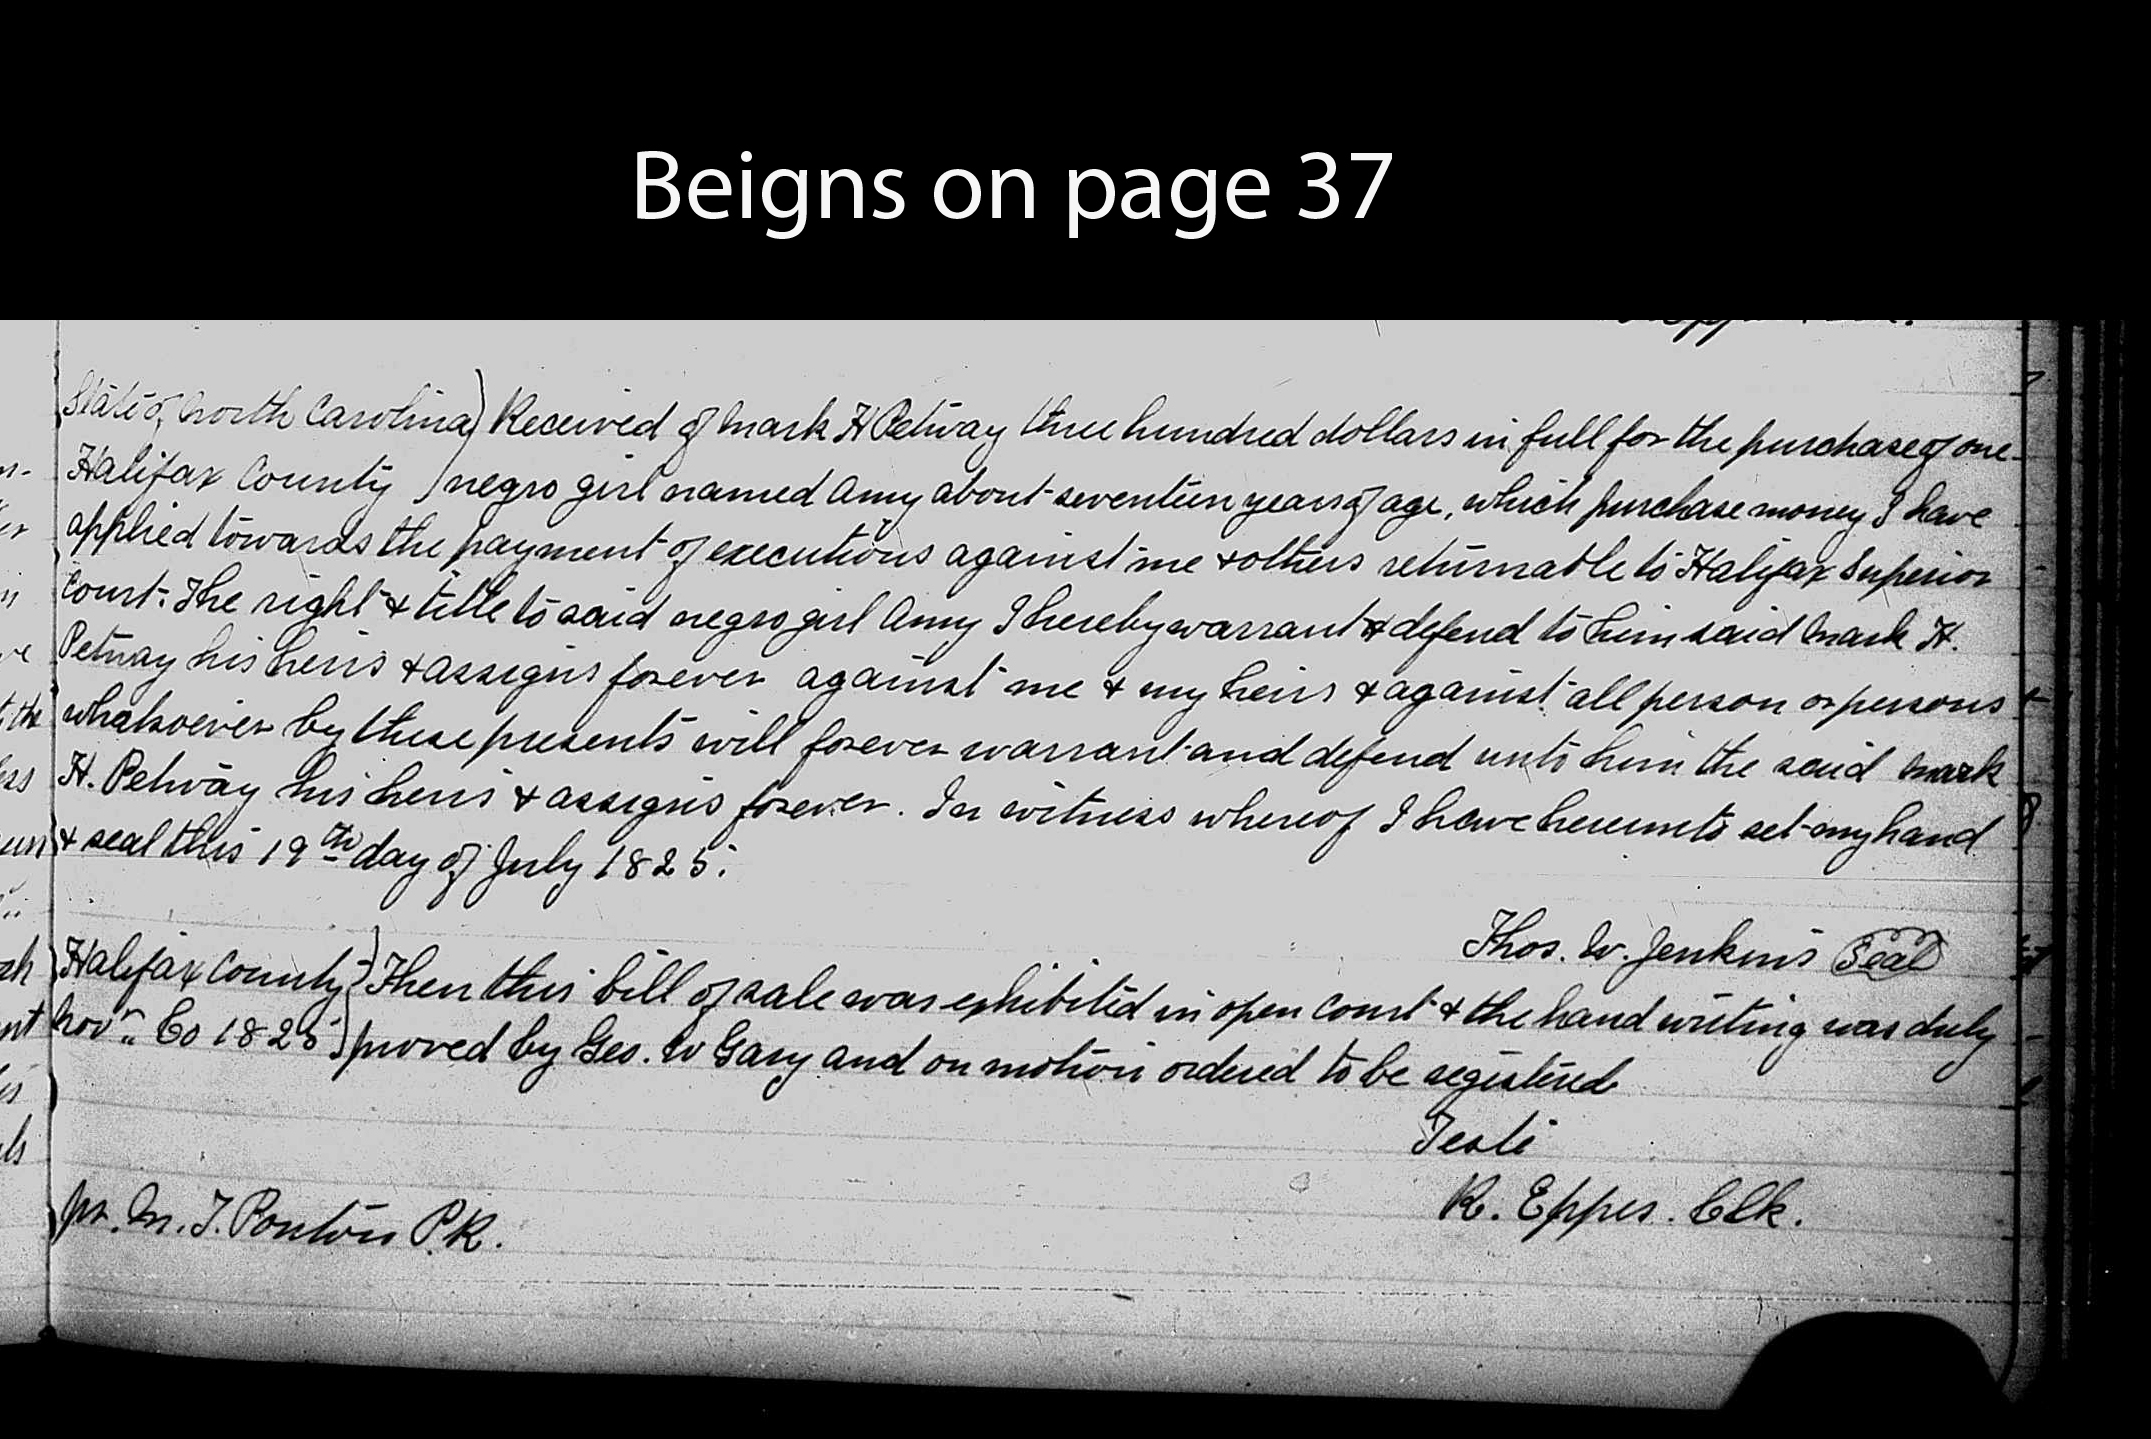 Beigns on page 37
State of North Carolina) Received of Mark H Petway three hundred dollars in full for the purchase of one
Halifax County ) negro girl named Amy about seventeen years of age, which purchase money I have
applied towards the payment of executions against me & others returnable to Halifax Superior
Court. The right & title to said negro girl Amy I hereby warrant & defend to him said Mark H.
Petway his heirs & assigns forever against me & my heirs & against all person or persons
whatsoever by these presents will forever warrant and defend unto him the said Mark
H. Petway his heirs & assigns forever. In witness whereof I have hereunto set my hand
& seal this 19th day of July 1825.
Thos. W. Jenkins Seal
Halifax County } Then this bill of sale was exhibited in open Court & the hand writing was duly
Novr. Co 1825 } proved by Geo. W Gary and on motion ordered to be registered
Teste
R. Eppes. Clk.
pr. M. T. Ponton P.R.